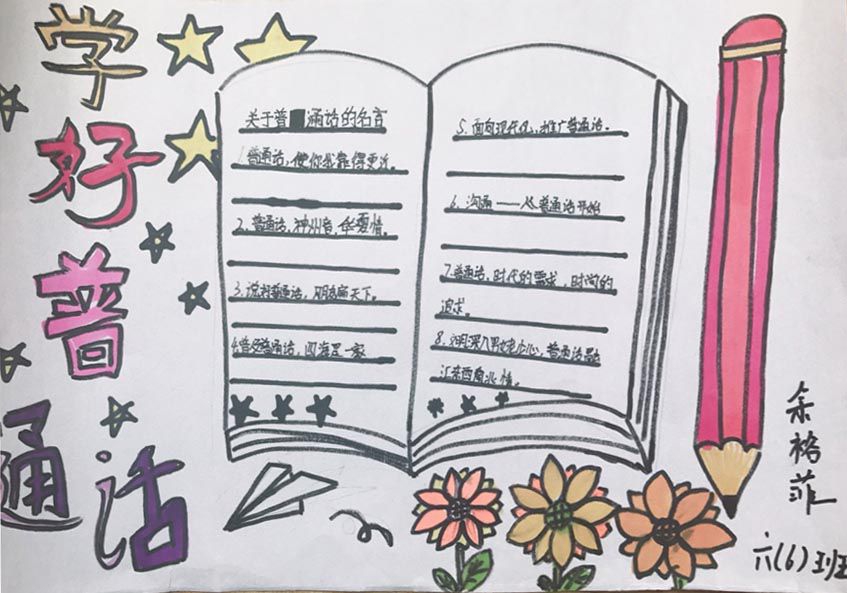 学好普通话
关于普通话的名言
1.普通话,使你我靠得更近。
2.普通话,神州音,华夏情。
3.说好普通话,朋友遍天下。
4.普及普通话,四海是一家
5.面向现代化,推广普通话。
6.沟通——从普通话开始
7.普通话,时代的需求,时间的
追求。
8.文明深入男女老少心,普通话融
汇东西南北情。
余格菲
六(6)班